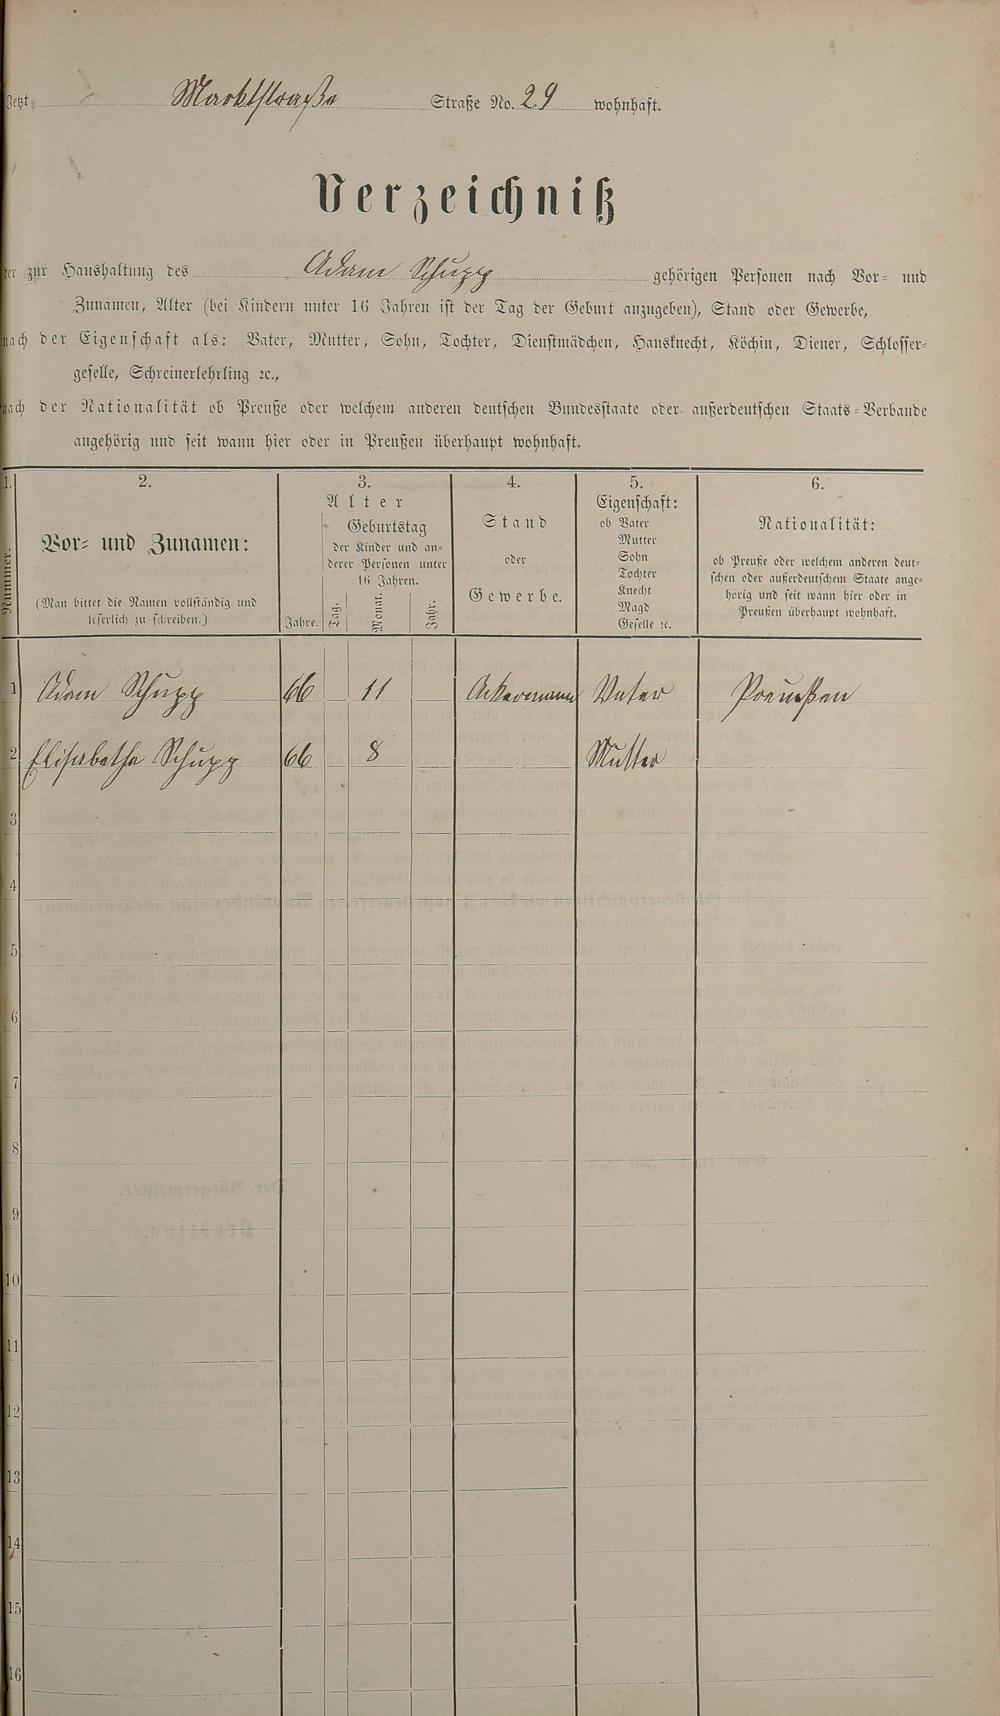 Jetzt Marktstraße Straße No. 29 wohnhaft.
Verzeichniß
der zur Haushaltung des Adam Schupp gehörigen Personen nach Vor- und
Zunamen, Alter (bei Kindern unter 16 Jahren ist der Tag der Geburt anzugeben), Stand oder Gewerbe,
nach der Eigenschaft als: Vater, Mutter, Sohn, Tochter, Dienstmädchen, Hausknecht, Köchin, Diener, Schlosser-
geselle, Schreinerlehrling ꝛc.,
nach der Nationalität ob Preuße oder welchem anderen deutschen Bundesstaate oder außerdeutschen Staats-Verbande
angehörig und seit wann hier oder in Preußen überhaupt wohnhaft.
1.
Nummer.
2.
Vor- und Zunamen:
(Man bittet die Namen vollständig und
leserlich zu schreiben.)
3.
Alter
Jahre.
Geburtstag
der Kinder und an-
derer Personen unter
16 Jahren.
Tag. Monat. Jahr.
4.
Stand
oder
Gewerbe.
5.
Eigenschaft:
ob Vater
Mutter
Sohn
Tochter
Knecht
Magd
Geselle ꝛc.
6.
Nationalität:
ob Preuße oder welchem anderen deut-
schen oder außerdeutschem Staate ange-
hörig und seit wann hier oder in
Preußen überhaupt wohnhaft.
1 Adam Schupp 66 11 Ackermann Vater Preußen
2 Elisabetha Schupp 66 8 Mutter
3
4
5
6
7
8
9
10
11
12
13
14
15
16